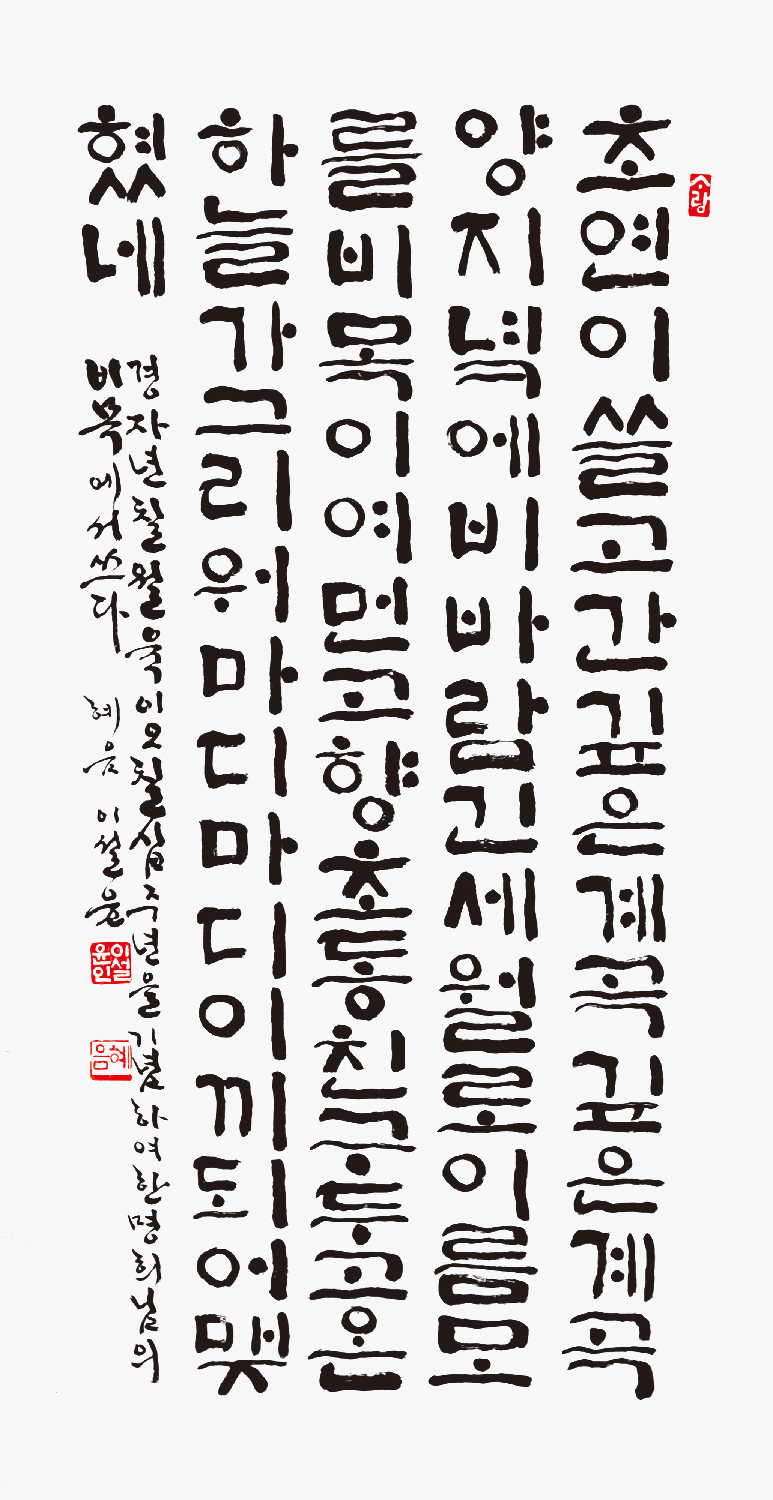 ᄉᆞ랑
초연이쓸고간깊은계곡깊은계곡
양지녘에비바람긴세월로이름모
를비목이여먼고향초동친구두고온
하늘가그리워마디마디이끼되어맺
혔네
경자년칠월육이오칠십주년을기념하여한명희님의
비목에서쓰다 혜음 이설윤
이설윤인
혜음